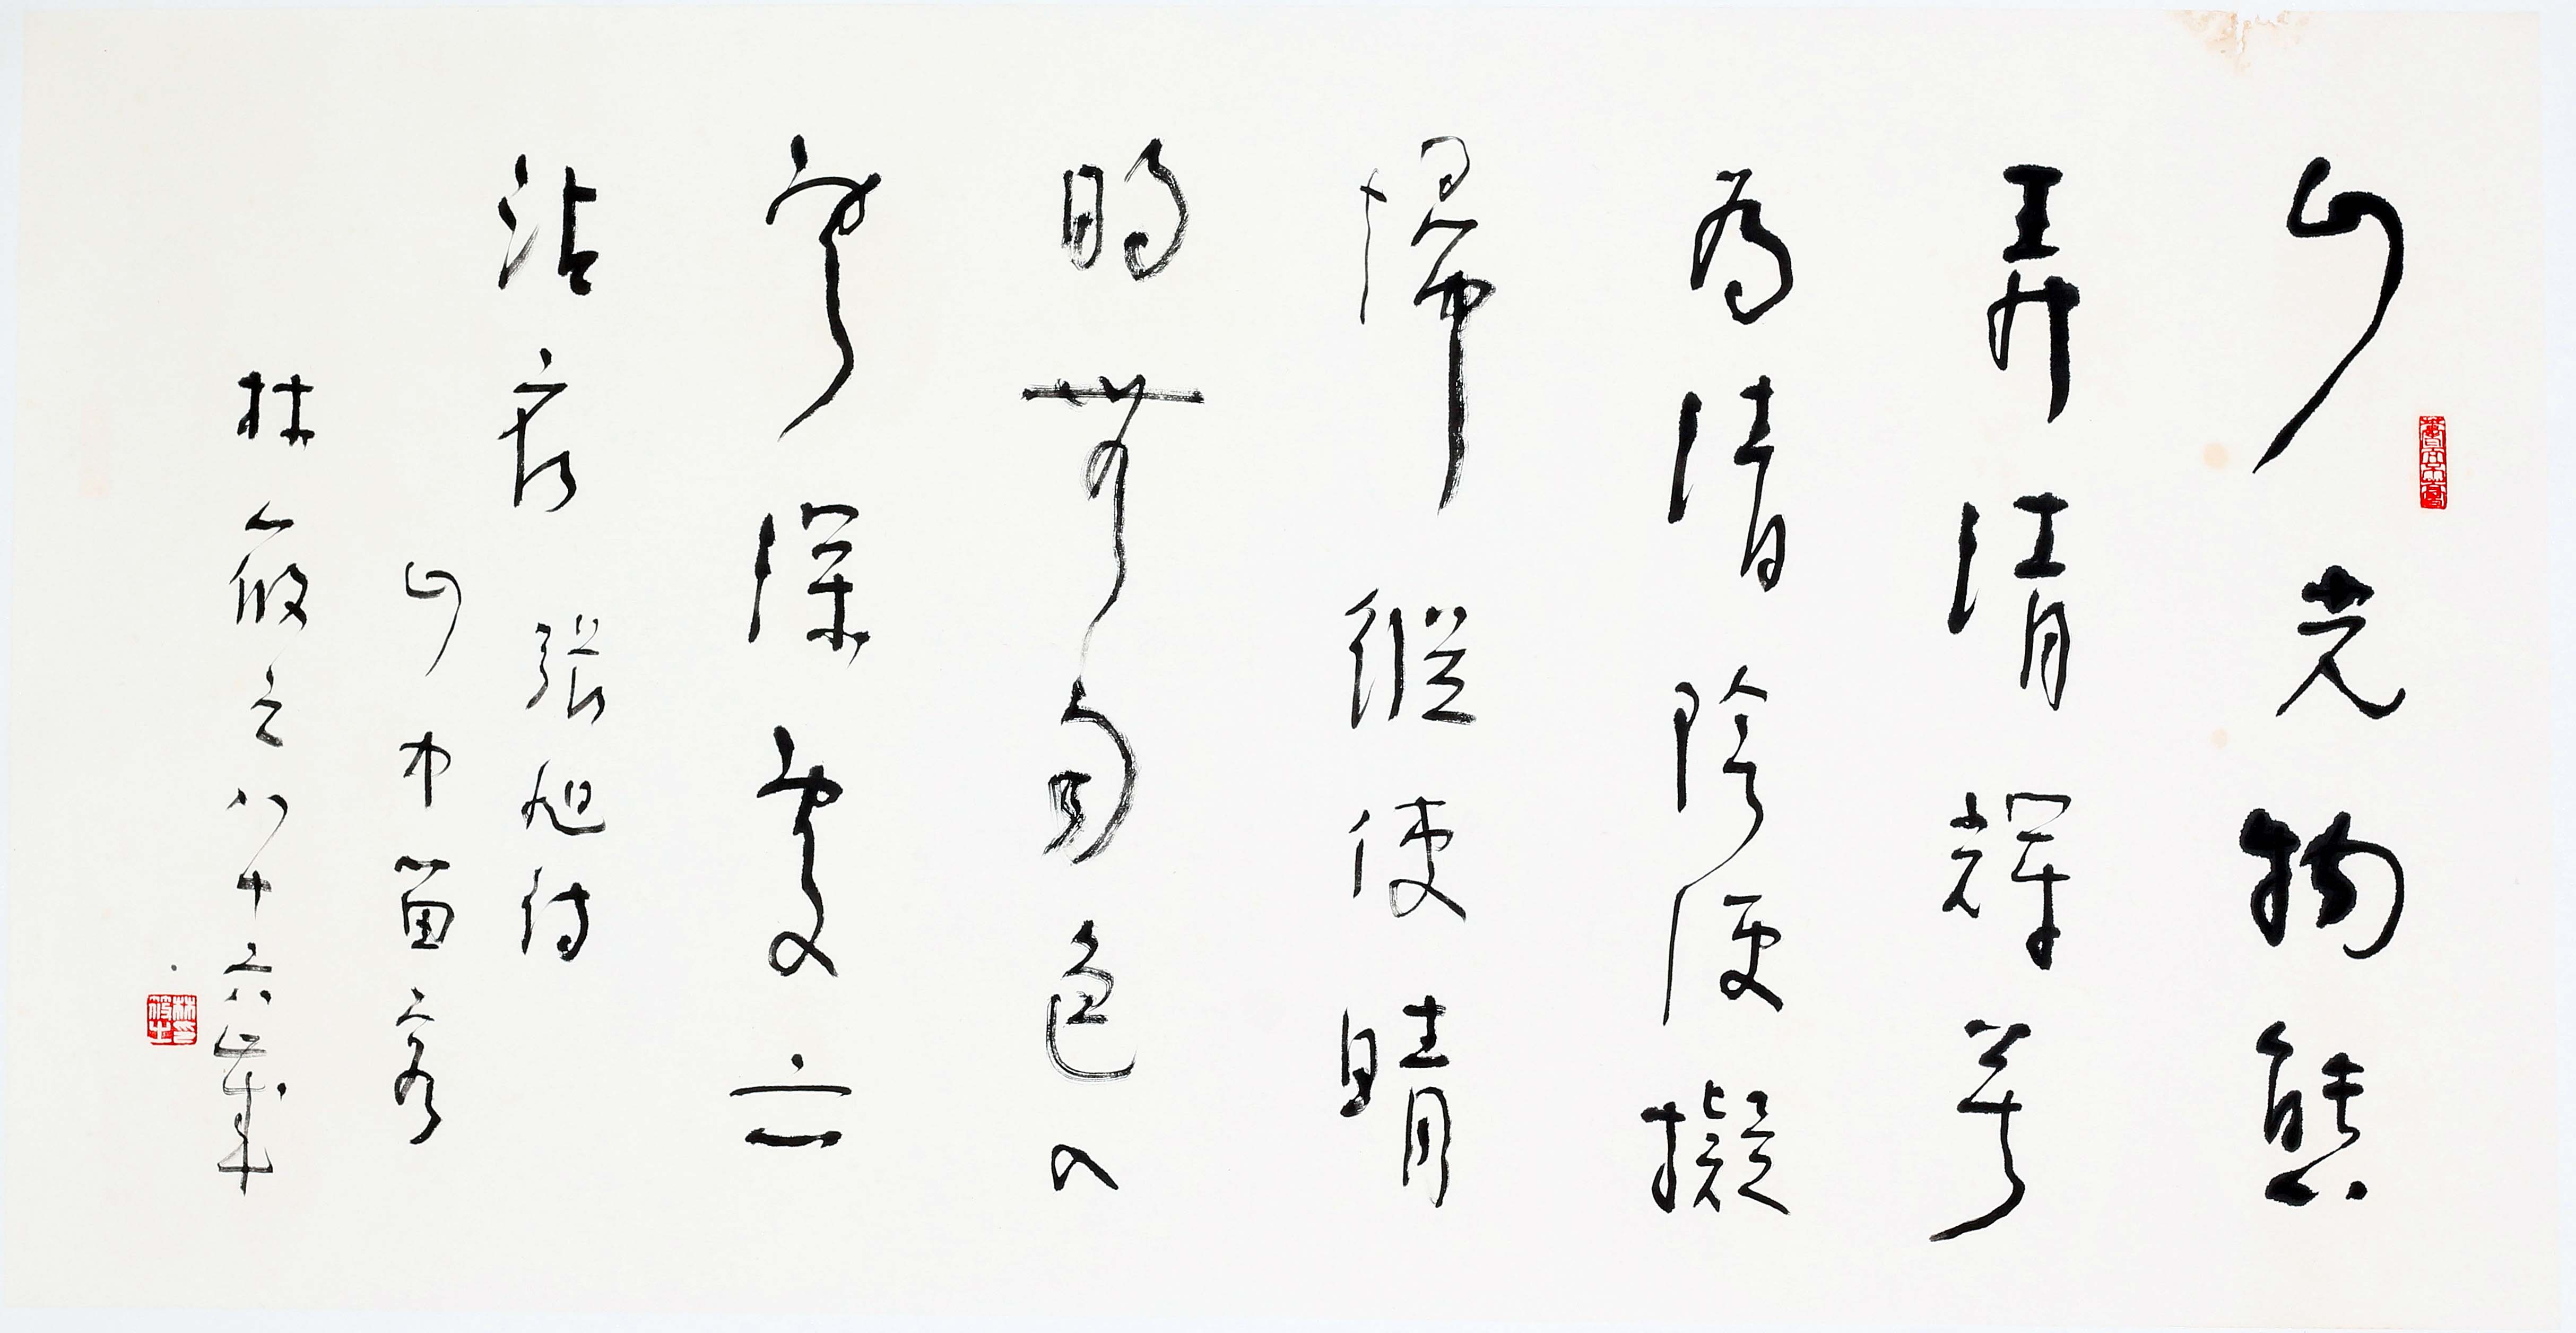 山光物態
弄清輝莫
為清陰便擬
歸縱使晴
明無雨色入
雲深處亦
沾衣 張旭詩
山中留客
林筱之八十六歲筆
林筱之印